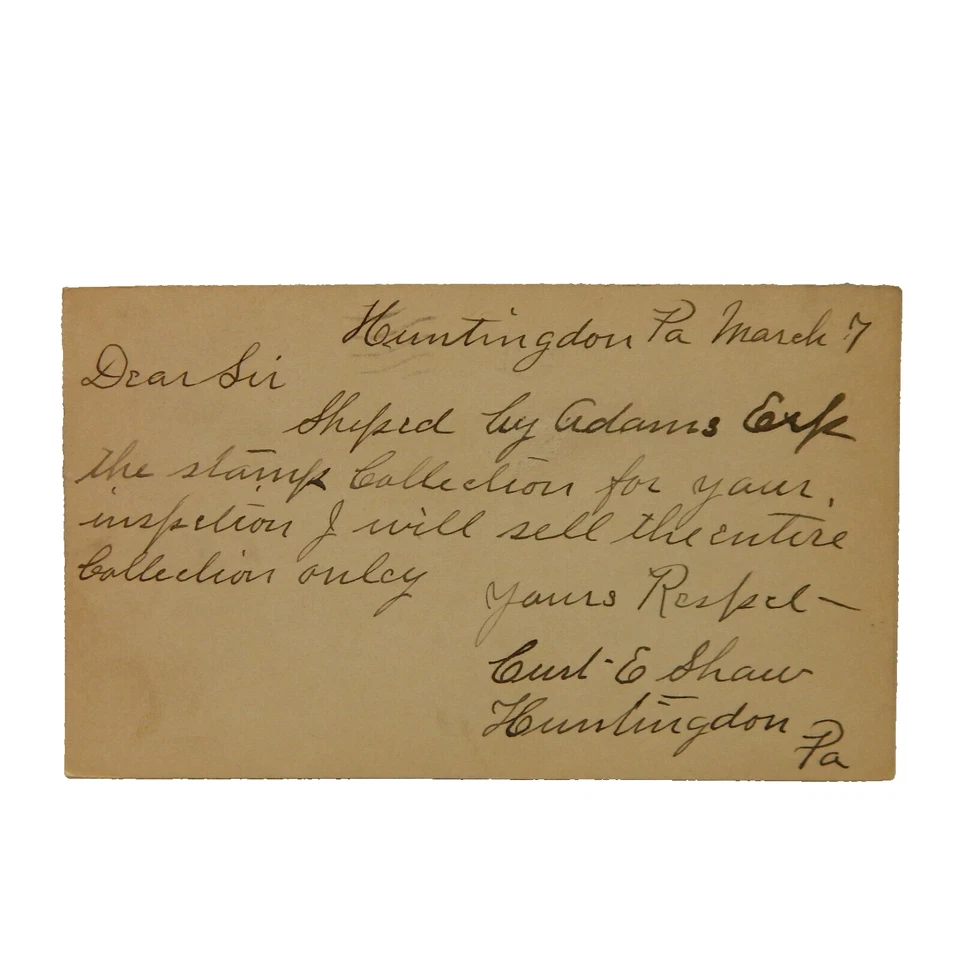 Huntingdon Pa March 7
Dear Sir
Shiped by Adams Exp
the stamp Collection for your
inspction I will sell the entire
Collection onley
yours Respct
Curt E Shaw
Huntingdon
Pa